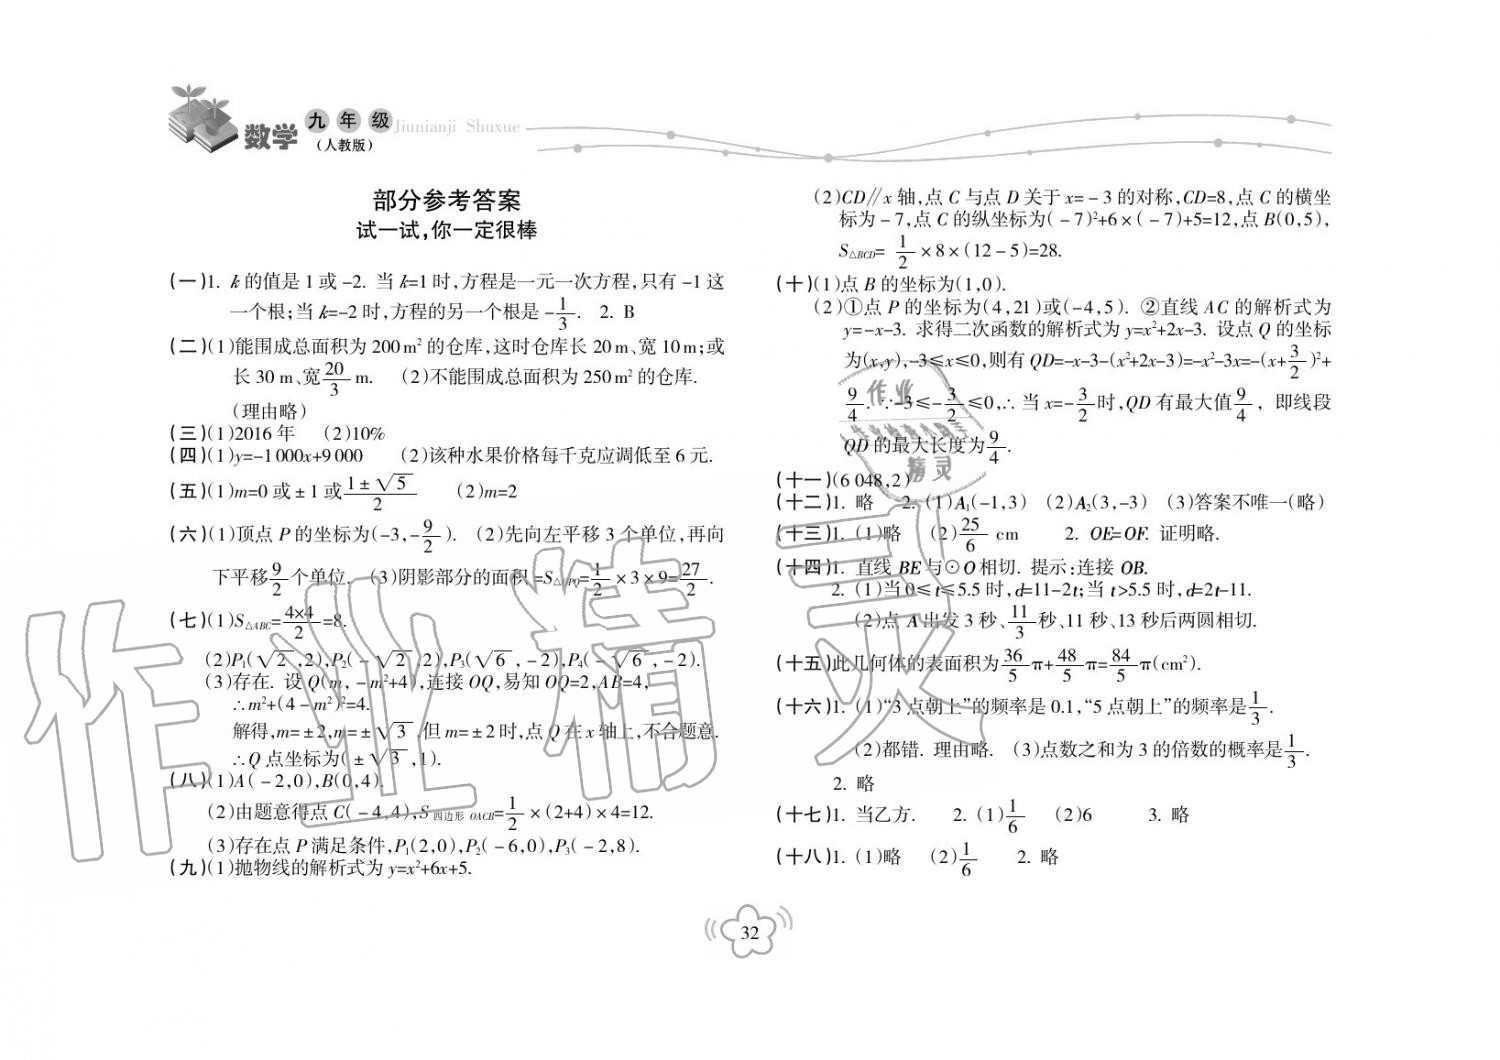 数学 九年级 Jiunianji Shuxue
(人教版)
部分参考答案
试一试,你一定很棒
(一)1. k 的值是 1 或 -2. 当 k=1 时,方程是一元一次方程,只有 -1 这
一个根;当 k=-2 时,方程的另一个根是 -1/3. 2. B
(二)(1)能围成总面积为 200 m² 的仓库,这时仓库长 20 m、宽 10 m;或
长 30 m、宽 20/3 m. (2)不能围成总面积为 250 m² 的仓库.
(理由略)
(三)(1)2016 年 (2)10%
(四)(1)y=-1 000x+9 000 (2)该种水果价格每千克应调低至 6 元.
(五)(1)m=0 或 ± 1 或 (1±√5)/2 (2)m=2
(六)(1)顶点 P 的坐标为(-3,-9/2). (2)先向左平移 3 个单位,再向
下平移 9/2 个单位. (3)阴影部分的面积 =S△OPQ=1/2×3×9=27/2.
(七)(1)S△ABC=4×4/2=8.
(2)P₁(√2,2),P₂(-√2,2),P₃(√6,-2),P₄(-√6,-2).
(3)存在. 设 Q(m,-m²+4),连接 OQ,易知 OQ=2,AB=4,
∴m²+(4-m²)²=4.
解得,m=±2,m=±√3,但 m=±2 时,点 Q 在 x 轴上,不合题意.
∴Q 点坐标为(±√3,1).
(八)(1)A(-2,0),B(0,4).
(2)由题意得点 C(-4,4),S四边形 OACB=1/2×(2+4)×4=12.
(3)存在点 P 满足条件,P₁(2,0),P₂(-6,0),P₃(-2,8).
(九)(1)抛物线的解析式为 y=x²+6x+5.
(2)CD∥x 轴,点 C 与点 D 关于 x=-3 的对称,CD=8,点 C 的横坐
标为 -7,点 C 的纵坐标为(-7)²+6×(-7)+5=12,点 B(0,5),
S△BCD=1/2×8×(12-5)=28.
(十)(1)点 B 的坐标为(1,0).
(2)①点 P 的坐标为(4,21)或(-4,5). ②直线 AC 的解析式为
y=-x-3. 求得二次函数的解析式为 y=x²+2x-3. 设点 Q 的坐标
为(x,y),-3≤x≤0,则有 QD=-x-3-(x²+2x-3)=-x²-3x=-(x+3/2)²+
9/4.∵-3≤-3/2≤0,∴当 x=-3/2时,QD 有最大值9/4,即线段
QD 的最大长度为9/4.
(十一)(6 048,2)
(十二)1. 略 2. (1)A₁(-1,3) (2)A₂(3,-3) (3)答案不唯一(略)
(十三)1. (1)略 (2)25/6 cm 2. OE=OF. 证明略.
(十四)1. 直线 BE 与⊙O 相切. 提示:连接 OB.
2. (1)当 0≤t≤5.5 时,d=11-2t;当 t>5.5 时,d=2t-11.
(2)点 A 出发 3 秒、11/3秒、11 秒、13 秒后两圆相切.
(十五)此几何体的表面积为36/5π+48/5π=84/5π(cm²).
(十六)1. (1)“3 点朝上”的频率是 0.1,“5 点朝上”的频率是1/3.
(2)都错. 理由略. (3)点数之和为 3 的倍数的概率是1/3.
2. 略
(十七)1. 当乙方. 2. (1)1/6 (2)6 3. 略
(十八)1. (1)略 (2)1/6 2. 略
32
作业精灵
作业
精灵